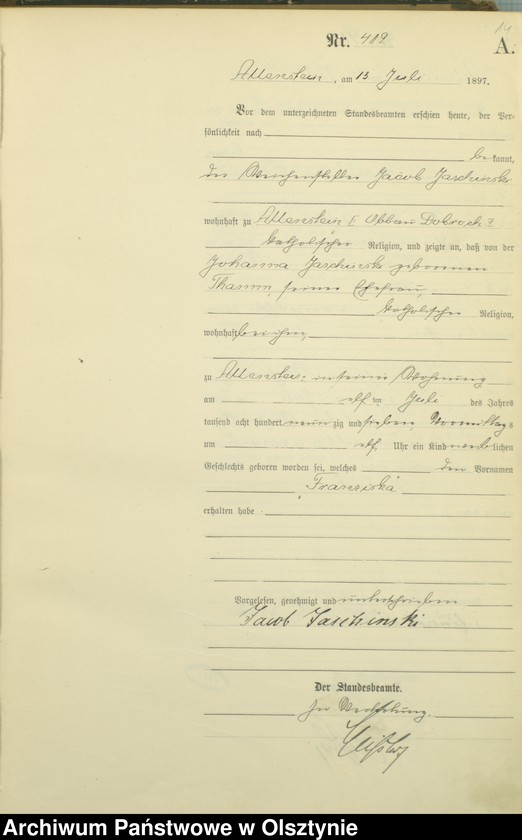 14
Nr. 482
A.
Allenstein, am 13 Juli 1897.
Vor dem unterzeichneten Standesbeamten erschien heute, der Per-
sönlichkeit nach
bekannt,
der Weichensteller Jacob Jaschinski
wohnhaft zu Allenstein Abbau
katholischer Religion, und zeigte an, daß von der
Johanna Jaschinski geborenen
Thamm, seiner Ehefrau,
katholischer Religion,
wohnhaft bei ihm,
zu Allenstein in seiner Wohnung
am elften Juli des Jahres
tausend acht hundert neunzig und sieben Vormittags
um elf Uhr ein Kind weiblichen
Geschlechts geboren worden sei, welches den Vornamen
Franziska
erhalten habe
Vorgelesen, genehmigt und unterschrieben
Jacob Jaschinski
Der Standesbeamte.
In Vertretung.
Archiwum Państwowe w Olsztynie